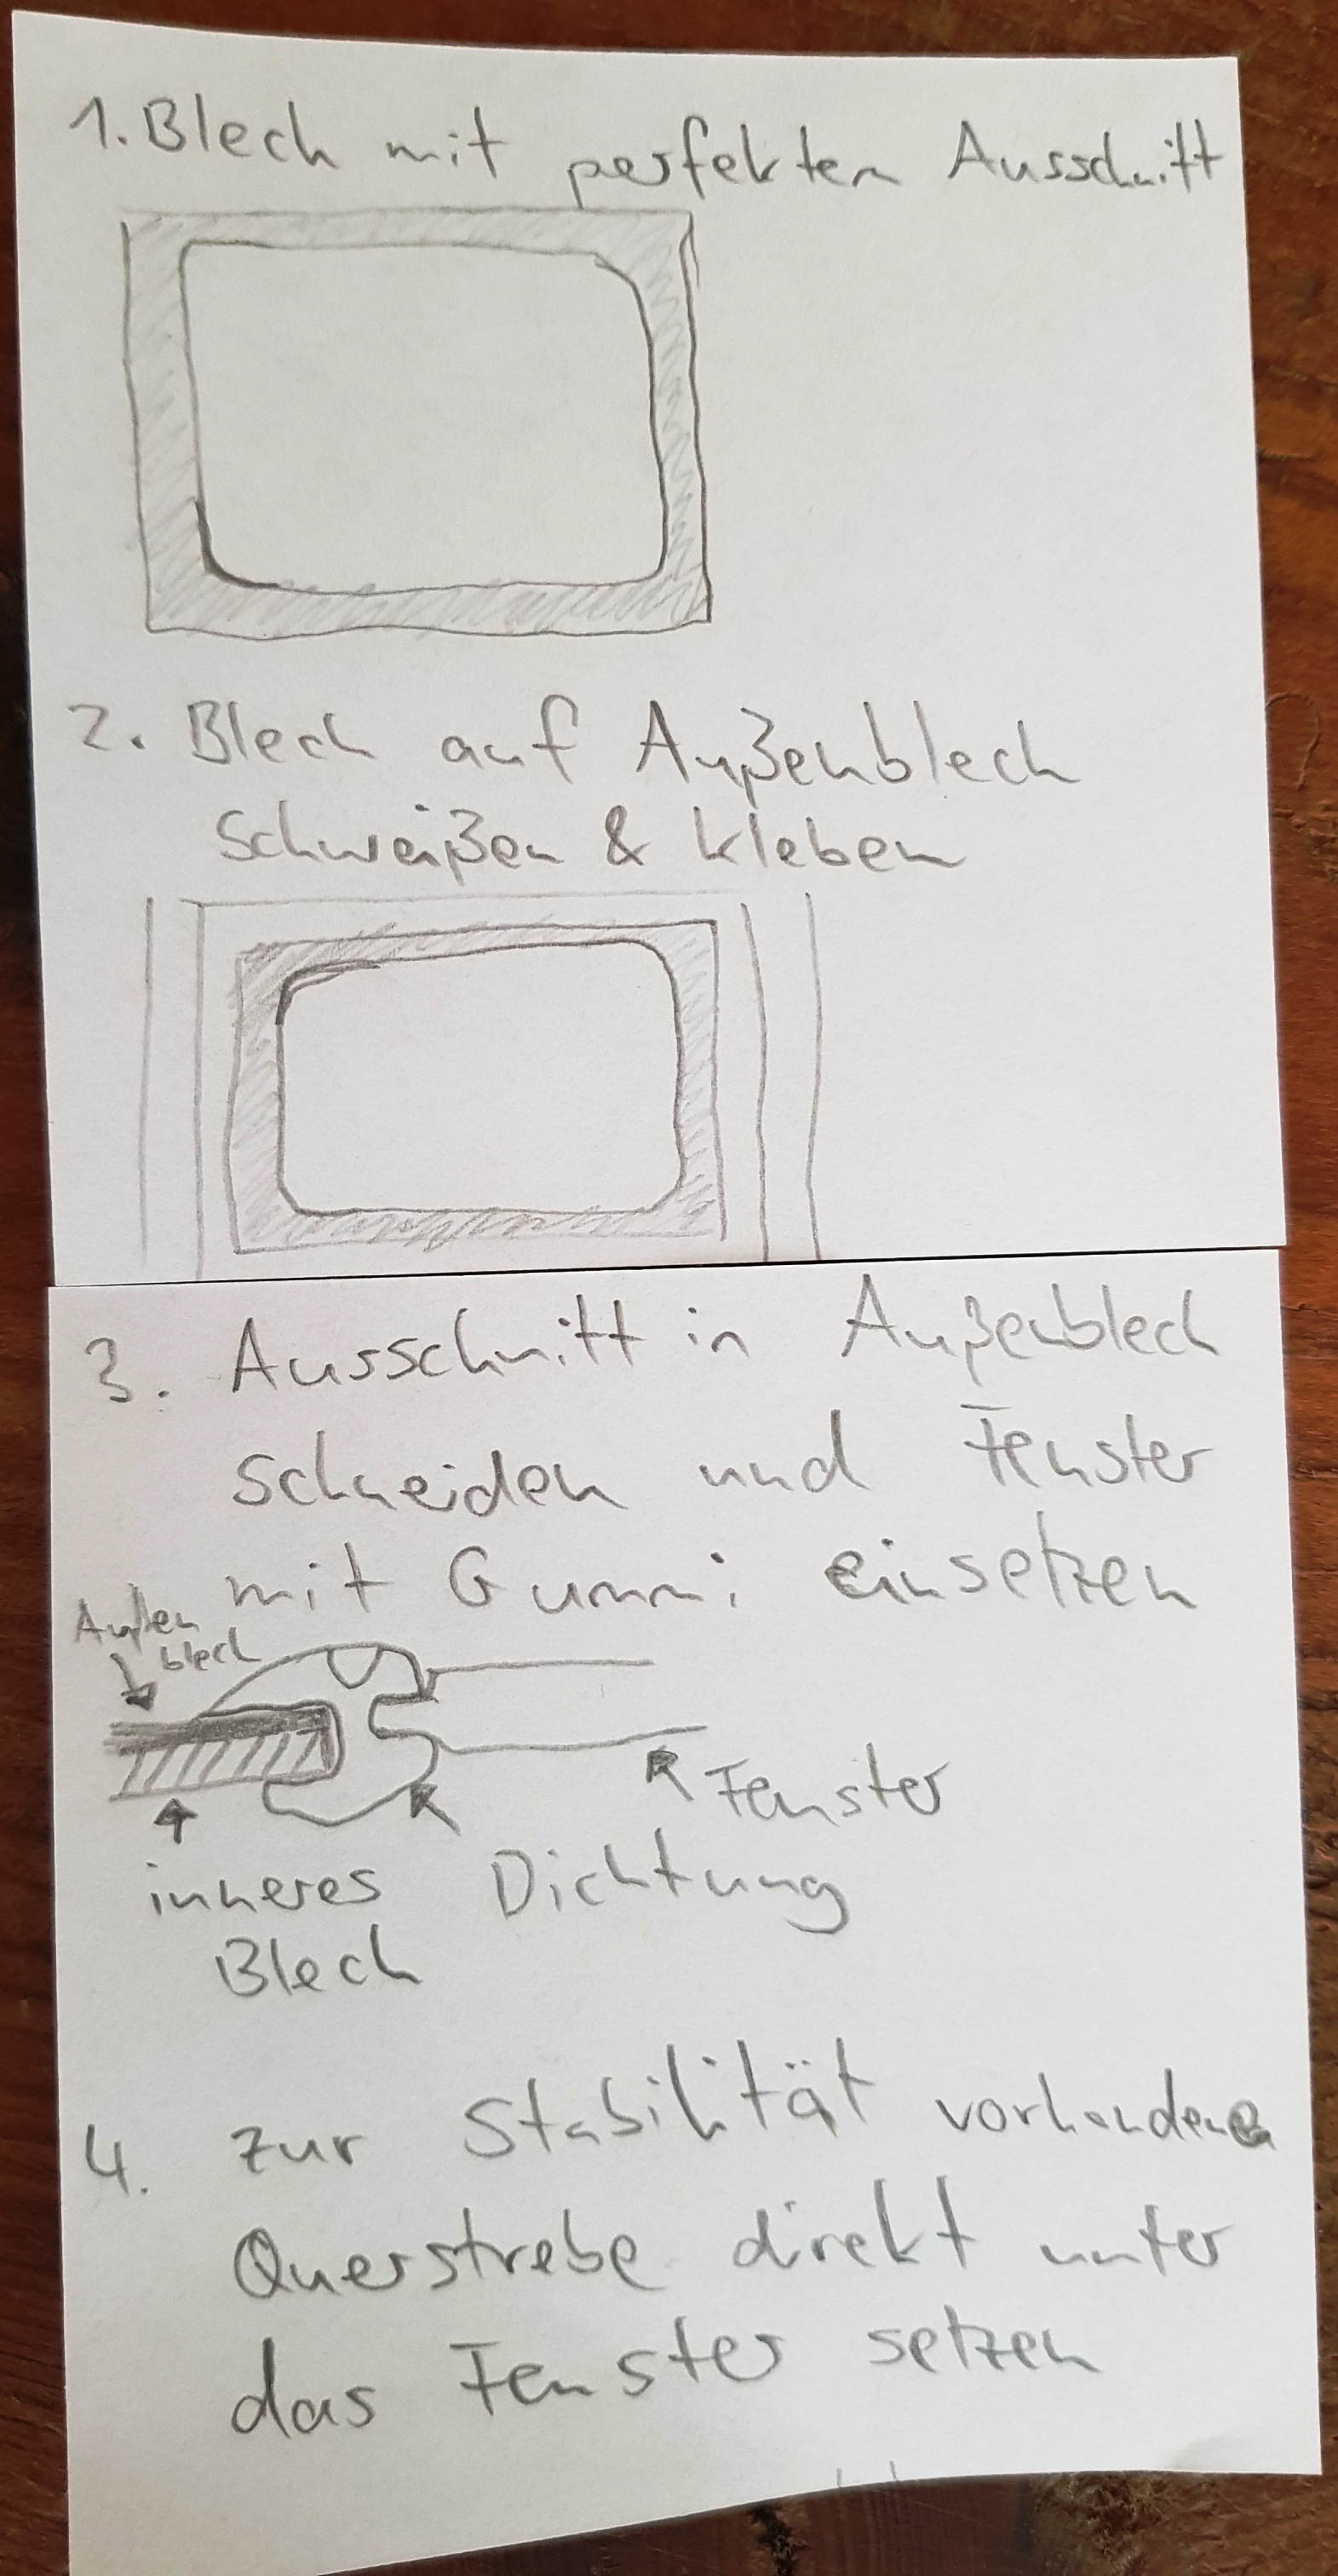 1. Blech mit perfekten Ausschnitt
2. Blech auf Außenblech
Schweißen & kleben
3. Ausschnitt in Außenblech
schneiden und Fenster
mit Gummi einsetzen
Außen
blech
Fenster
inneres Dichtung
Blech
4. zur Stabilität vorhandene
Querstrebe direkt unter
das Fenster setzen